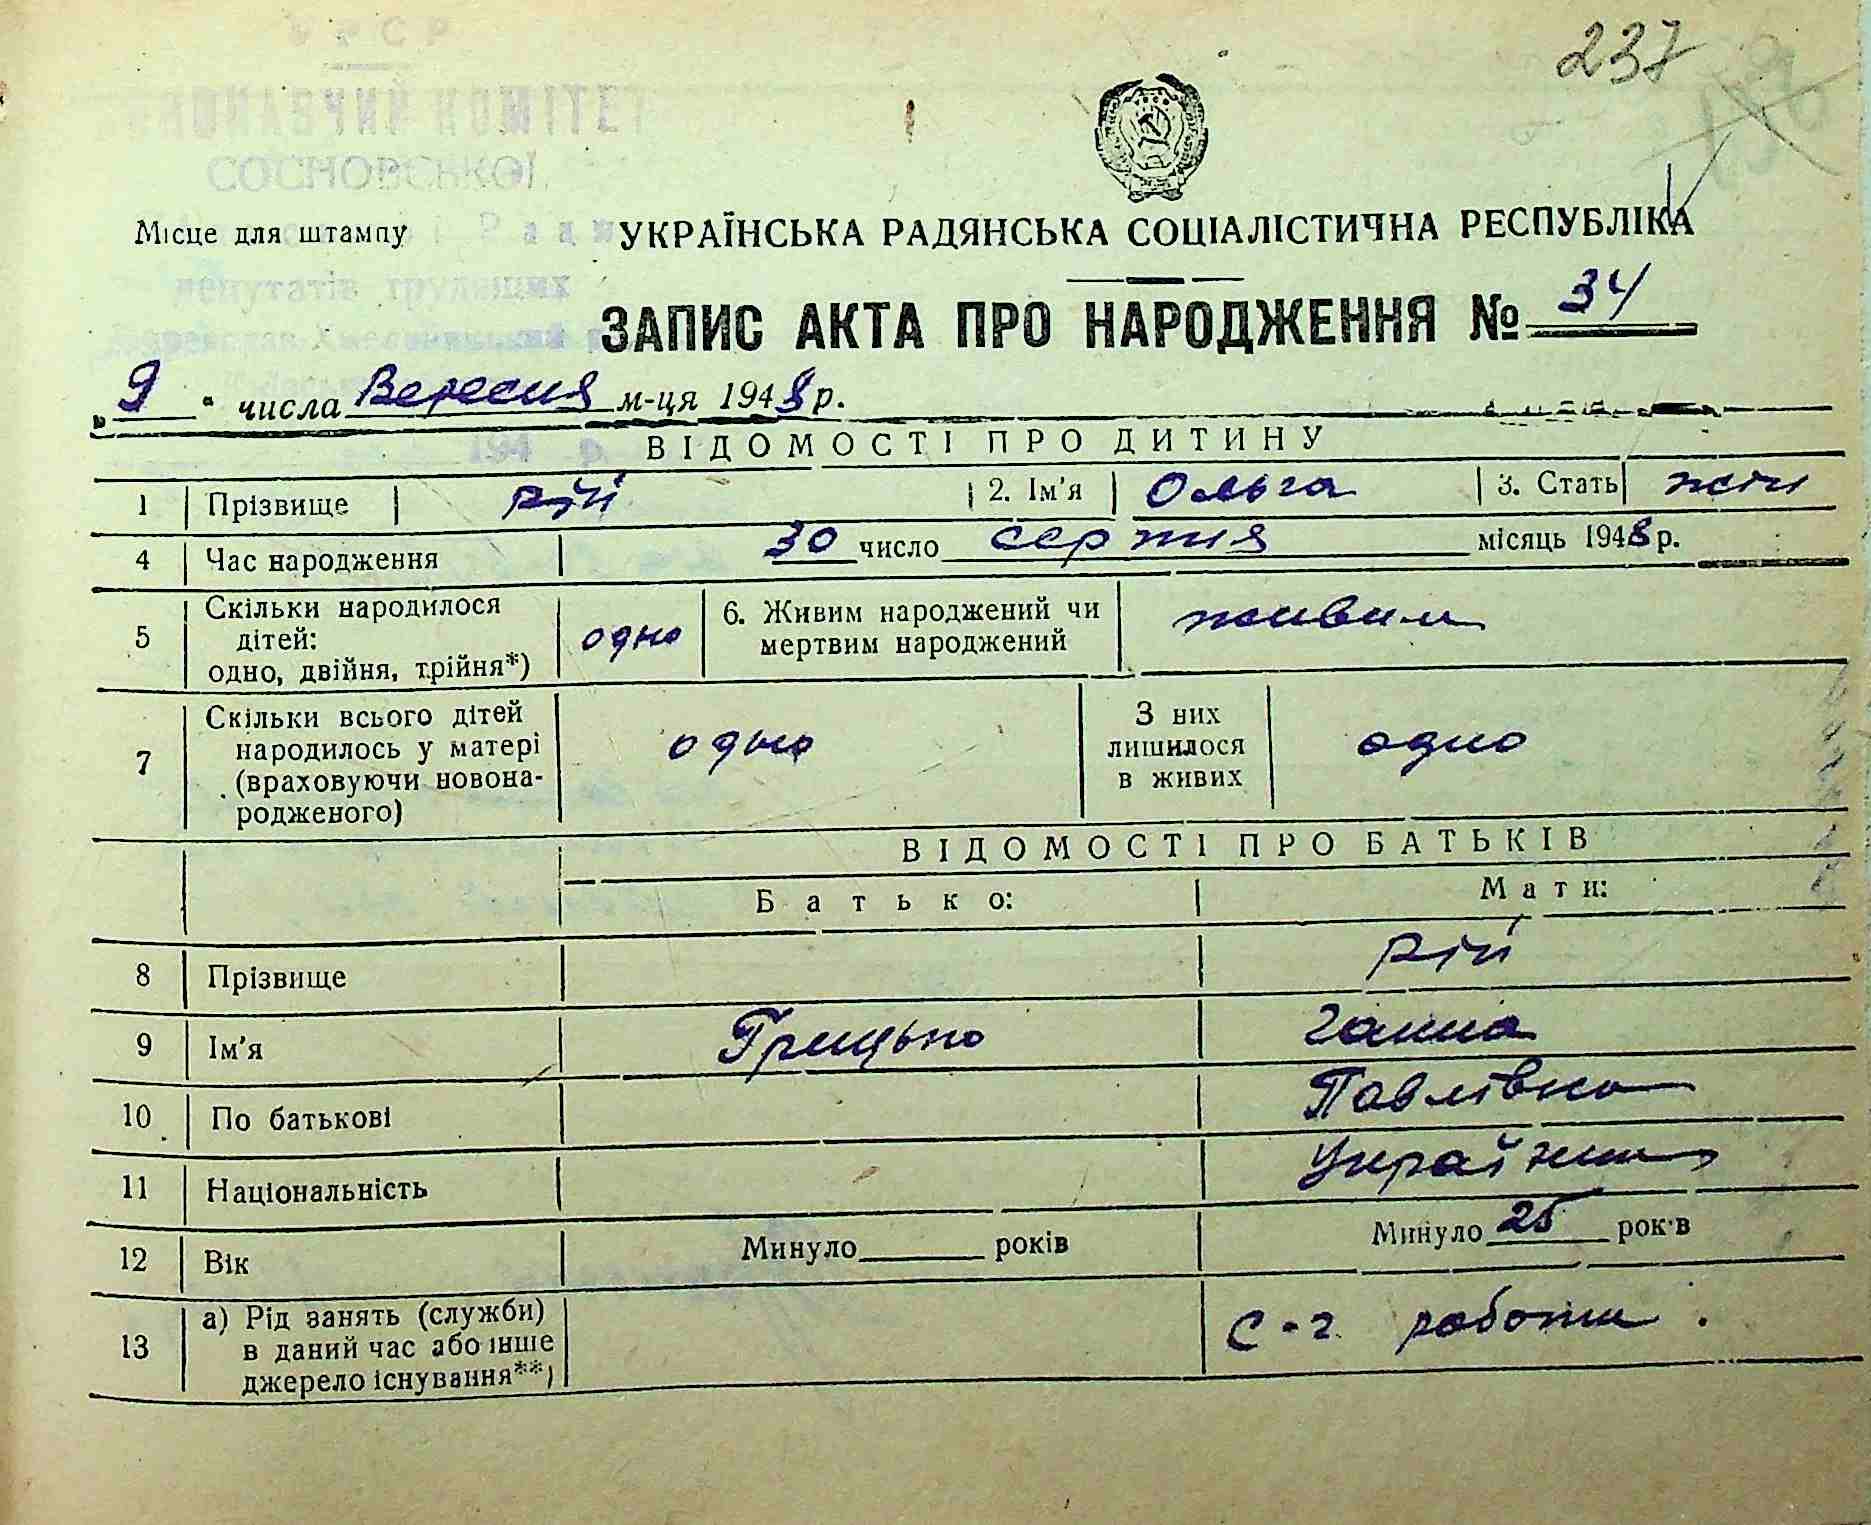 237
УРСР
ВИКОНАВЧИЙ КОМІТЕТ
СОСНОВСЬКОЇ
Місце для штампу
Ради
депутатів трудящих
УКРАЇНСЬКА РАДЯНСЬКА СОЦІАЛІСТИЧНА РЕСПУБЛІКА
ЗАПИС АКТА ПРО НАРОДЖЕННЯ № 34
„ 9 " числа Вересня м-ця 1948 р.
194 р.
ВІДОМОСТІ ПРО ДИТИНУ
1 Прізвище Рій 2. Ім'я Ольга 3. Стать жін
4 Час народження 30 число серпня місяць 1948 р.
5 Скільки народилося дітей: одно, двійня, трійня*) одно 6. Живим народжений чи мертвим народжений живим
7 Скільки всього дітей народилось у матері (враховуючи новонародженого) одно З них лишилося в живих одно
ВІДОМОСТІ ПРО БАТЬКІВ
Батько: Мати:
8 Прізвище Рій
9 Ім'я Грицько Ганна
10 По батькові Павлівна
11 Національність Українка
12 Вік Минуло років Минуло 25 років
13 а) Рід занять (служби) в даний час або інше джерело існування**) с-г. роботи.